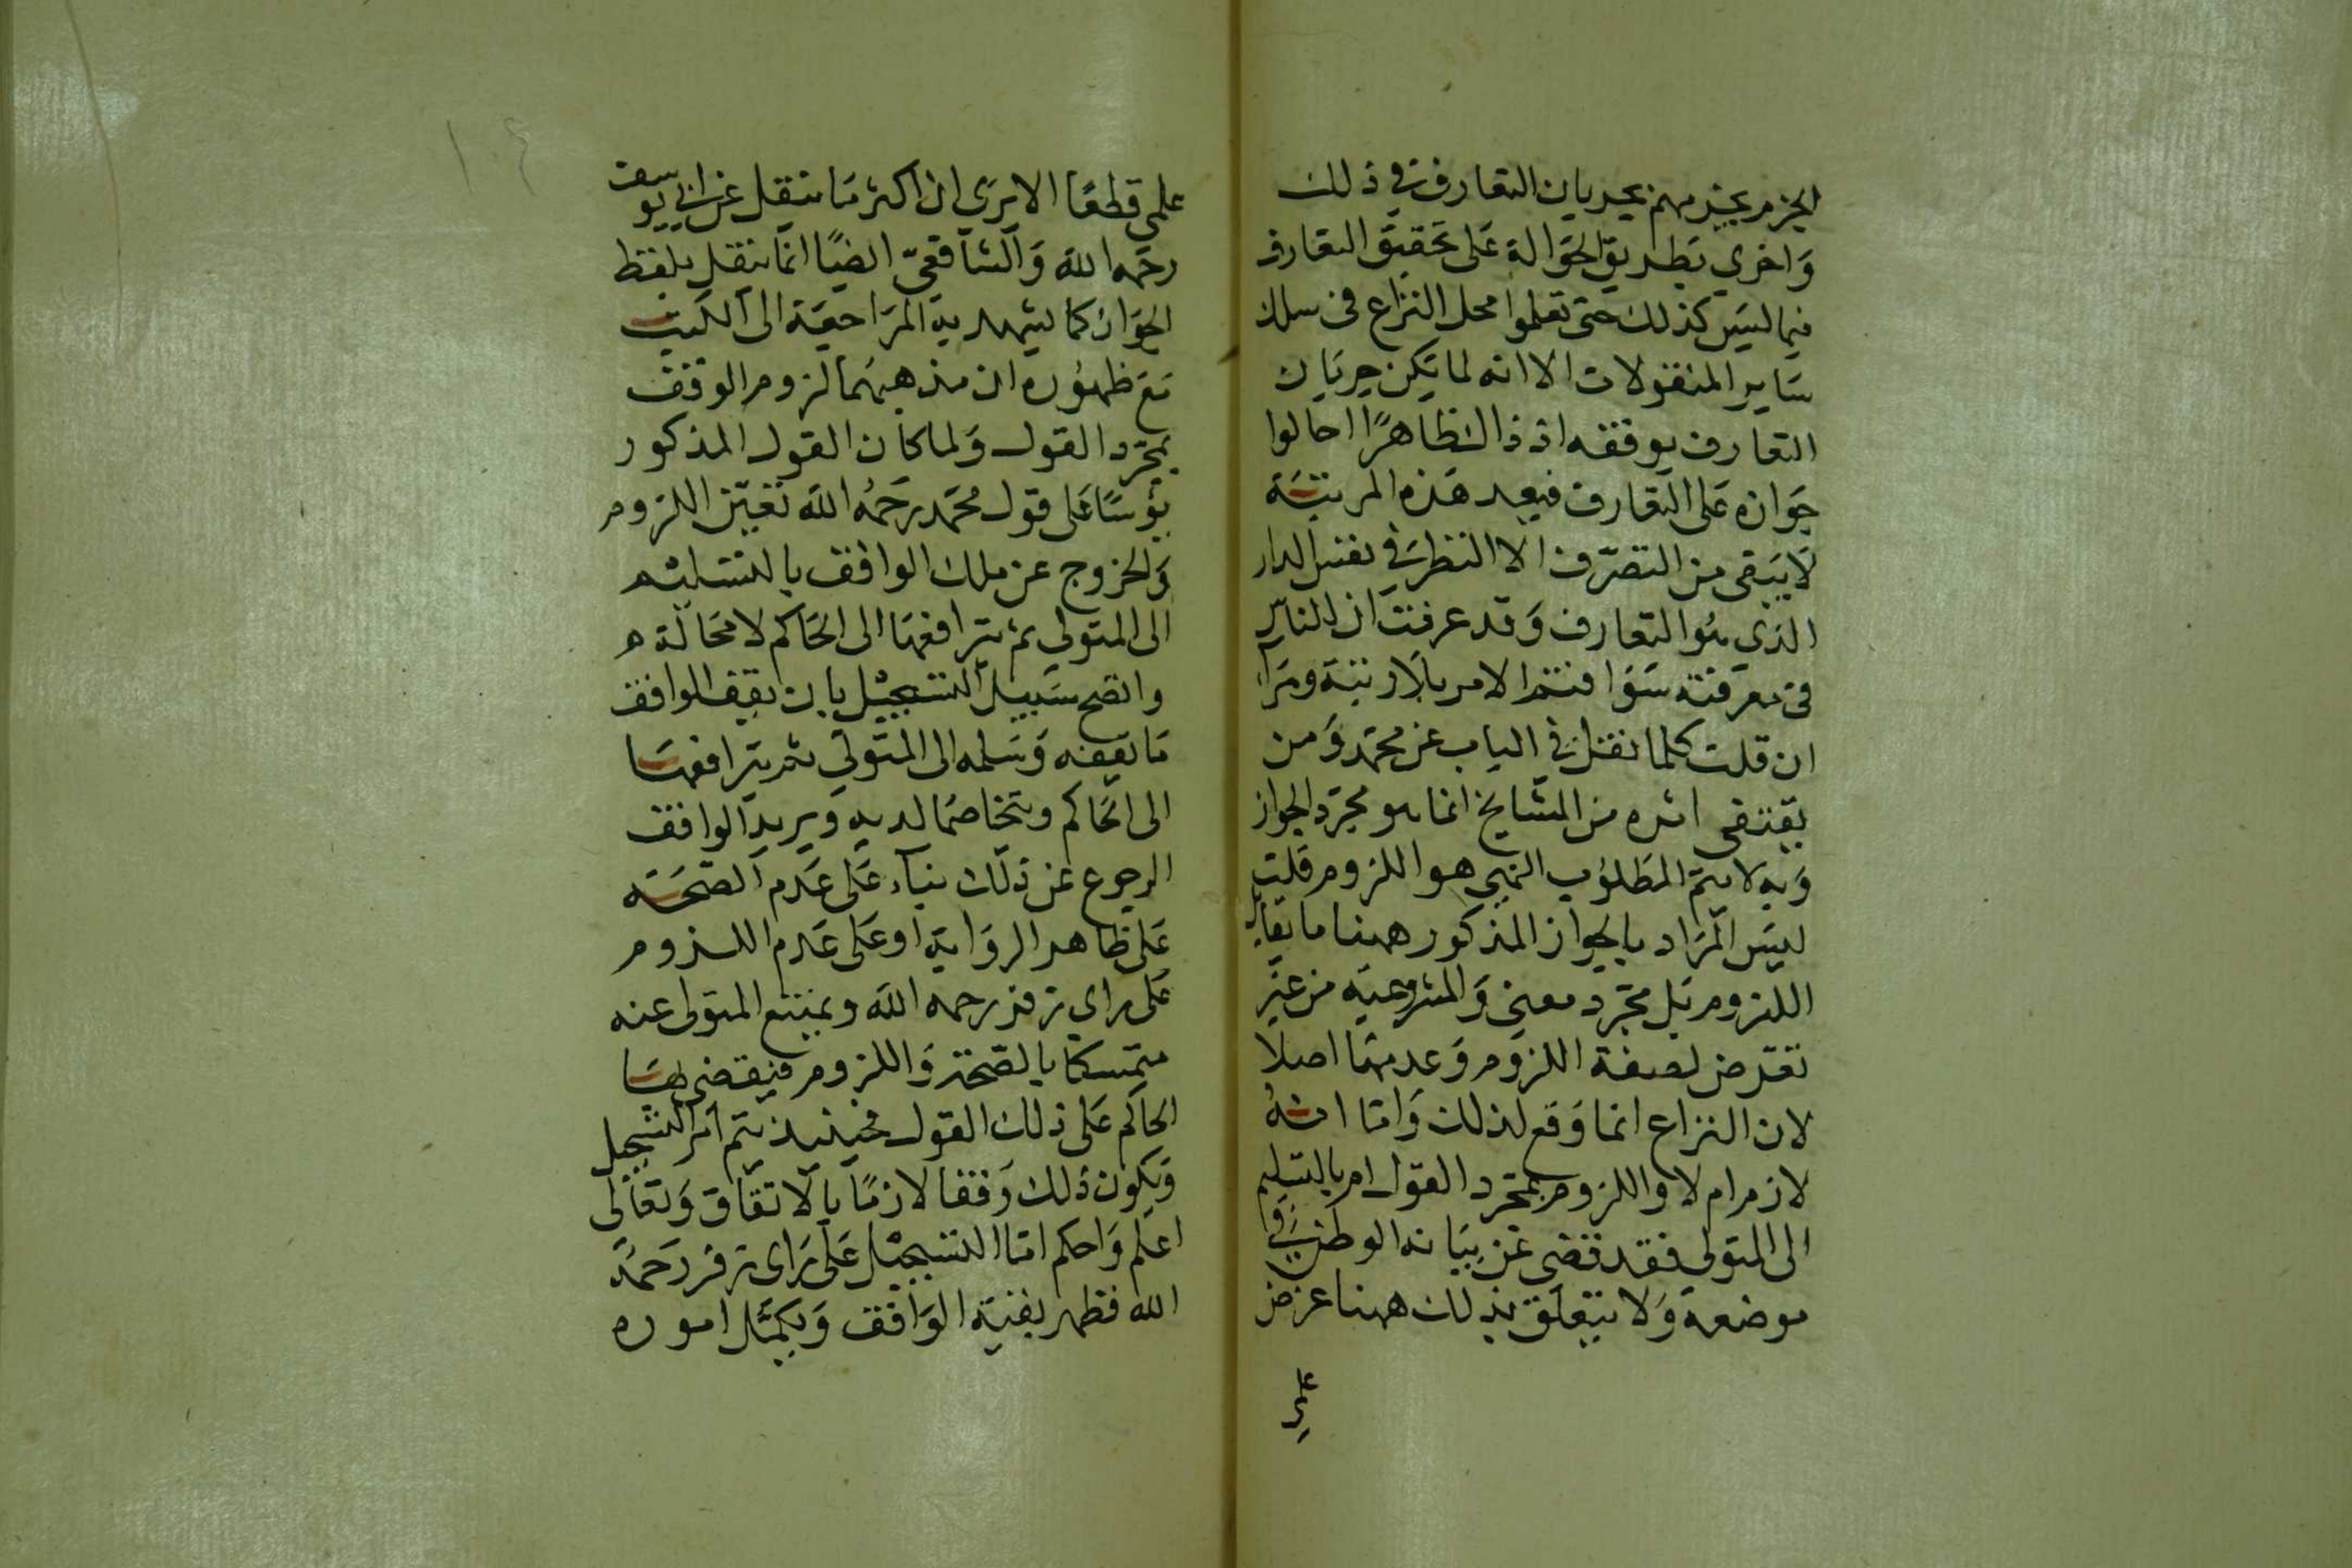 الجزم بجزمهم بجريان التعارف في ذلك
واخرى بطريق الحوالة على تحقيق التعارف
فيما ليس كذلك حتى تعلموا محل النزاع في سلك
ساير المنقولات الا انه لما يكن جريان
التعارف بوقفه اذ ذاك ظاهرًا احالوا
جوازه على التعارف فبعد هذه المرتبة
لا يبقى من التصرف الا النظر في نفس الدار
الذي هو التعارف وقد عرفت ان الناس
في معرفته سوا فتم الامر بلا ريبة ومرا
ان قلت كلما نقل في الباب عن محمد ومن
يقتفى اثره من المشايخ انما هو مجرد الجواز
وبه لا يتم المطلوب الذي هو اللزوم قلت
ليس المراد بالجواز المذكور ههنا ما يقابل
اللزوم بل مجرد معنى والمشروعية من غير
تعرض لصفة اللزوم وعدمها اصلا
لان النزاع انما وقع لذلك واما انه
لازم ام لا واللزوم بمجرد القول ام بالتسليم
الى المتولي فقد قضى عن بيانه الوطر في
موضعه ولا يتعلق بذلك ههنا غرض
علمى
١٠٤
علمى قطعًا الا يرى ان اكثر ما ينقل عن ابي يوسف
رحمه الله والشافعي ايضًا انما ينقل بلفظ
الجواز كما يشهد به المراجعة الى الكتب
مع ظهوره ان مذهبهما لزوم الوقف
بمجرد القول ولما كان القول المذكور
مؤسسًا على قول محمد رحمه الله تعين اللزوم
والخروج عن ملك الواقف بالتسليم
الى المتولي ثم ترافعهما الى الحاكم لا محالة
واتضح سبيل التسجيل بان يقف الواقف
ما يقفه وسلمه الى المتولي ثم يترافعها
الى الحاكم ويتخاصما لديه ويريد الواقف
الرجوع عن ذلك بناء على عدم الصحة
على ظاهر الرواية او على عدم اللزوم
على راي زفر رحمه الله ويمنع المتولي عنه
متمسكا بالصحة واللزوم فيقضى بهما
الحاكم على ذلك القول فحينئذ يتم امر التسجيل
ويكون ذلك وقفا لازمًا بالاتفاق وتعالى
اعلم واحكم اما التسجيل على راى زفر رحمه
الله فظهر بغنية الواقف ويكمل اموره